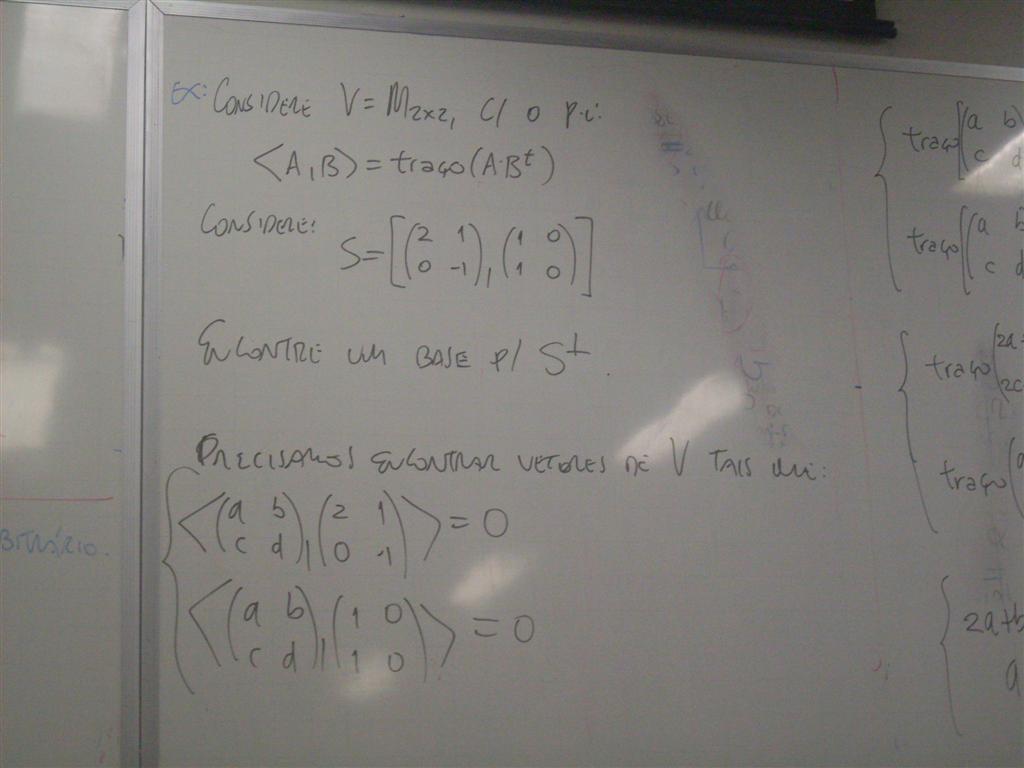 EX: CONSIDERE V = M2x2, C/ O P.I:
<A,B> = traço(A·B^t)
CONSIDERE:
S = [(2 1; 0 -1), (1 0; 1 0)]
ENCONTRE UM BASE P/ S^⊥.
PRECISAMOS ENCONTRAR VETORES DE V TAIS QUE:
<(a b; c d), (2 1; 0 -1)> = 0
<(a b; c d), (1 0; 1 0)> = 0
traço[(a b; c d
traço[(a b; c d
traço(2a 2c
traço(
2a+b
a